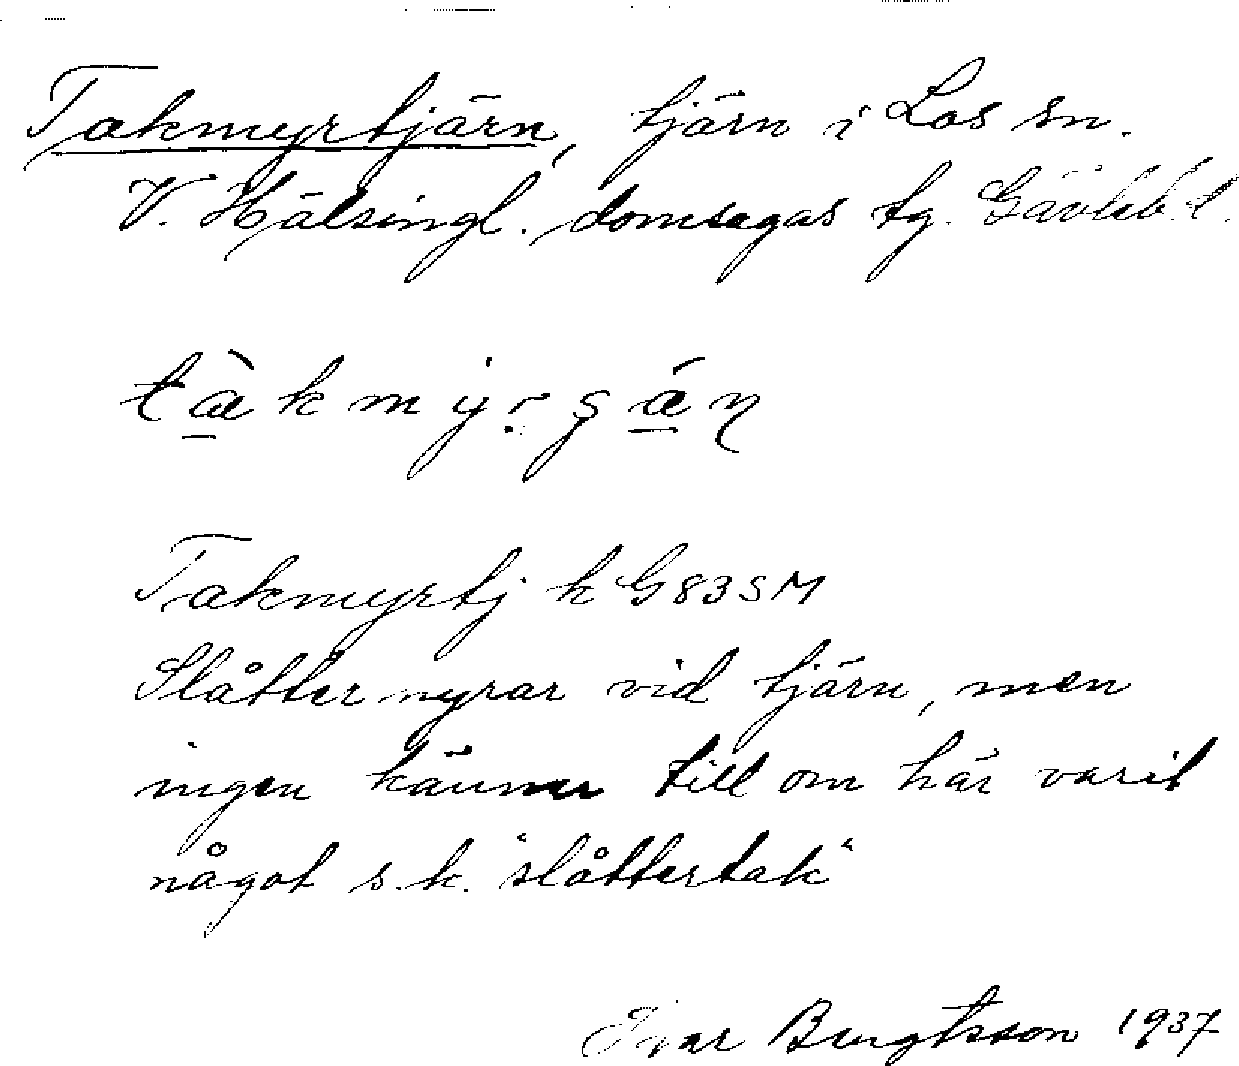 Takmyrtjärn, tjärn i Los sn.
V. Hälsingl. domsagas tg. Gävleb. l.
tàkmyrşán
Takmyrtj k G 83 S M
Slåttermyrar vid tjärn, men
ingen känner till om här varit
något s.k. "slåttertak"
Ivar Bengtsson 1937